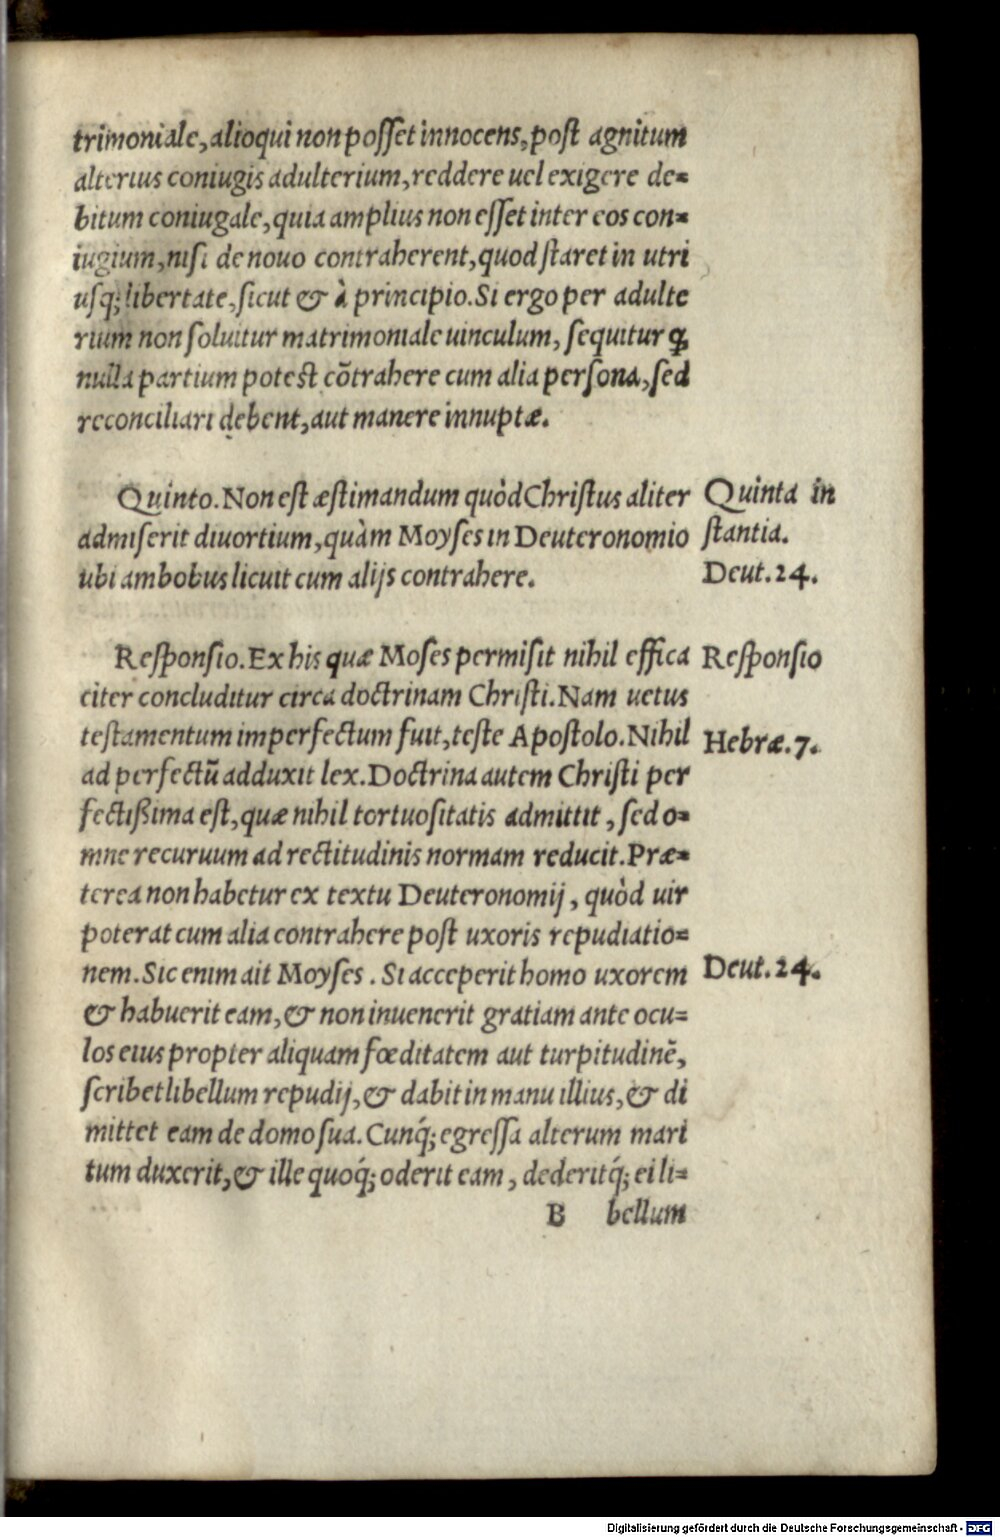 trimoniale, alioqui non posset innocens, post agnitum
alterius coniugis adulterium, reddere uel exigere de=
bitum coniugale, quia amplius non esset inter eos con=
iugium, nisi de nouo contraherent, quod staret in utri
usq; libertate, sicut & à principio. Si ergo per adulte
rium non soluitur matrimoniale uinculum, sequitur ꝙ
nulla partium potest cōtrahere cum alia persona, sed
reconciliari debent, aut manere innuptæ.
Quinto. Non est æstimandum quòd Christus aliter
admiserit diuortium, quàm Moyses in Deuteronomio
ubi ambobus licuit cum alijs contrahere.
Quinta in
stantia.
Deut. 24.
Responsio. Ex his quæ Moses permisit nihil effica
citer concluditur circa doctrinam Christi. Nam uetus
testamentum imperfectum fuit, teste Apostolo. Nihil
ad perfectū adduxit lex. Doctrina autem Christi per
fectißima est, quæ nihil tortuositatis admittit, sed o=
mne recuruum ad rectitudinis normam reducit. Præ=
terea non habetur ex textu Deuteronomij, quòd uir
poterat cum alia contrahere post uxoris repudiatio=
nem. Sic enim ait Moyses. Si acceperit homo uxorem
& habuerit eam, & non inuenerit gratiam ante ocu=
los eius propter aliquam fœditatem aut turpitudinē,
scribet libellum repudij, & dabit in manu illius, & di
mittet eam de domo sua. Cunq́; egressa alterum mari
tum duxerit, & ille quoq́; oderit eam, dederitq́; ei li=
Responsio
Hebræ. 7.
Deut. 24.
B bellum
Digitalisierung gefördert durch die Deutsche Forschungsgemeinschaft - DFG